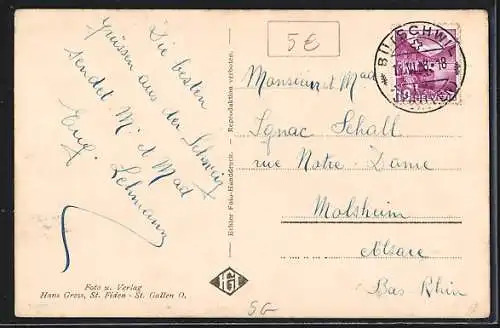 Die besten
Grüssen aus der Schweiz
sendet M' et Mad
Eug. Lehmann
Foto u. Verlag
Hans Gross, St. Fiden - St. Gallen O.
Echter Foto-Handdruck. - Reproduktion verboten.
5 €
BÜTSCHWIL
18
10
HELVETIA
Monsieur et Mad.
Ignac Schall
rue Notre-Dame
Molsheim
Alsace
Bas Rhin
HG
SG